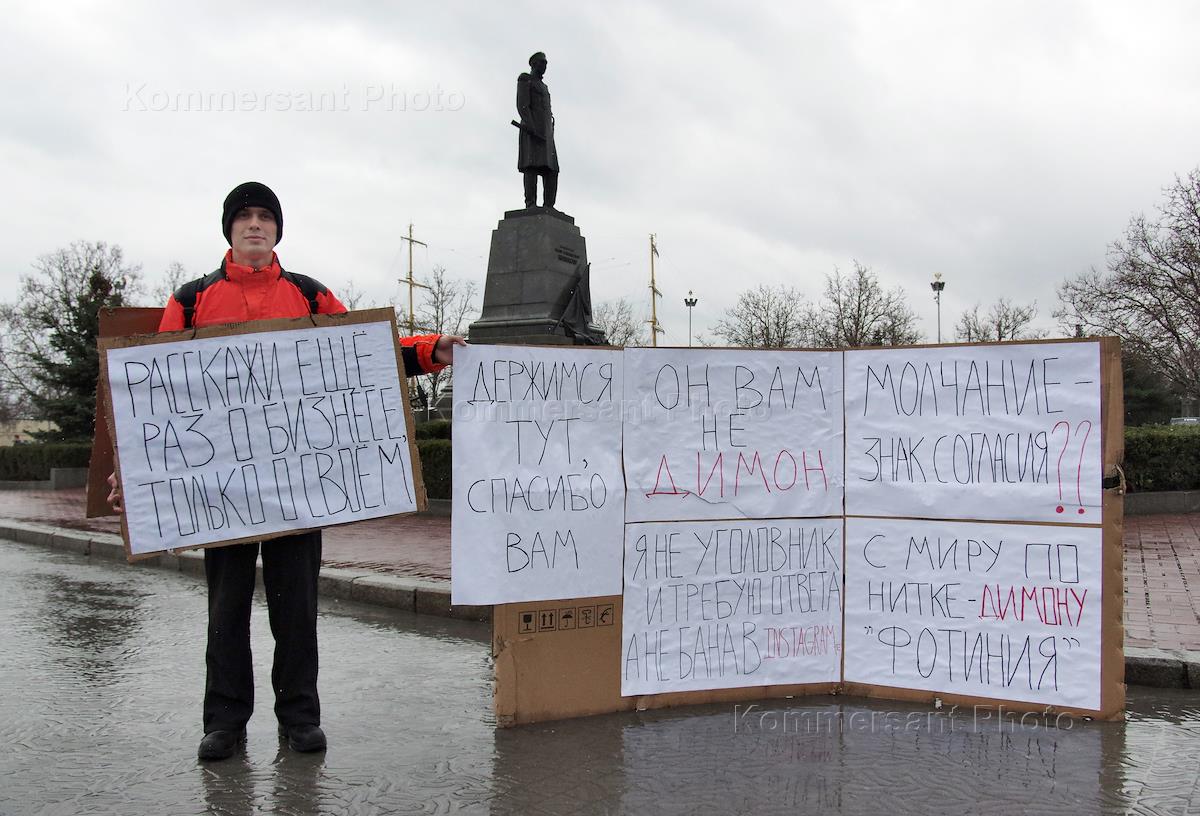 Kommersant Photo
РАССКАЖИ ЕЩЁ
РАЗ О БИЗНЕСЕ,
ТОЛЬКО О СВОЁМ
ДЕРЖИМСЯ
ТУТ,
СПАСИБО
ВАМ
ОН ВАМ
НЕ
ДИМОН
МОЛЧАНИЕ-
ЗНАК СОГЛАСИЯ??
Я НЕ УГОЛОВНИК
И ТРЕБУЮ ОТВЕТА
А НЕ БАНА В INSTAGRAM
С МИРУ ПО
НИТКЕ-ДИМОНУ
"ФОТИНИЯ"
Kommersant Photo
Kommersant Photo